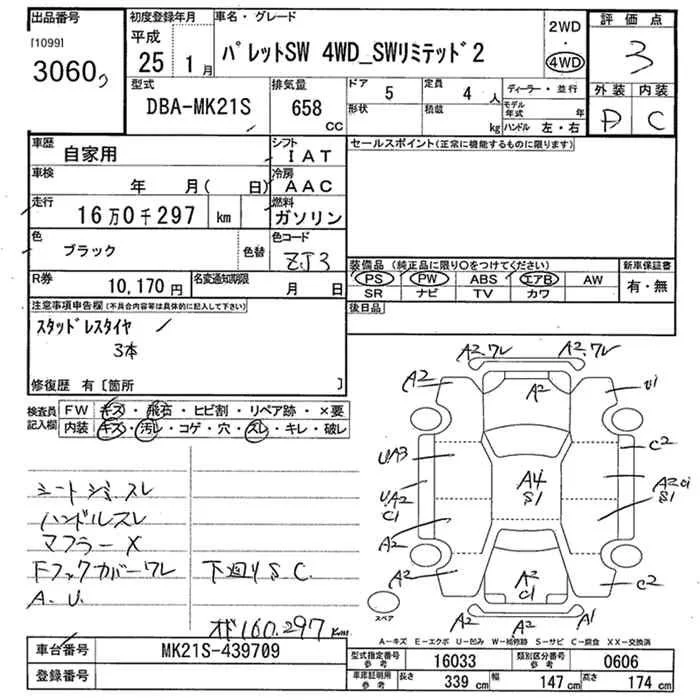 出品番号
[1099]
3060
初度登録年月
平成
25 1月
車名・グレード
パレットSW 4WD_SWリミテッド2
2WD
・
4WD
評価点
3
型式
DBA-MK21S
排気量
658
CC
ドア
5
定員
4 人
形状
積載
kg
ディーラー・並行
モデル年式 年
ハンドル 左・右
外装 内装
D C
車歴
自家用
シフト
IAT
車検
年 月( 日)
冷房
AAC
走行
16万0千297 km
燃料
ガソリン
色
ブラック
色替
色コード
ZJ3
R券
10,170円
名変通知期限
月 日
セールスポイント(正常に機能するものに限ります)
装備品(純正品に限り〇をつけてください)
PS PW ABS エアB AW
SR ナビ TV カワ
新車保証書
有・無
後日品
注意事項申告欄(不具合内容等は具体的に記入して下さい)
スタッドレスタイヤ
3本
修復歴 有[箇所 ]
検査員
記入欄
FW キズ・飛石・ヒビ割・リペア跡・×要
内装 キズ・汚レ・コゲ・穴・スレ・キレ・破レ
シートシミ.スレ
ハンドルスレ
マフラーX
Fフックカバーワレ
A.U.
下廻りS.C.
オド160.297km
A2.ワレ A2.ワレ
A2 A2 U1
UA3 C2
A4
S1
A2
S1
UA2
C1
A2
A2 C2
A2
C1
A2 A2 A1
スペア
A-キズ E-エクボ U-凹み W-補修跡 S-サビ C-腐食 XX-交換済
車台番号
MK21S-439709
登録番号
型式指定番号
参考
16033
類別区分番号
参考
0606
車庫証明用
参考
長さ
339 cm
幅
147 cm
高さ
174 cm